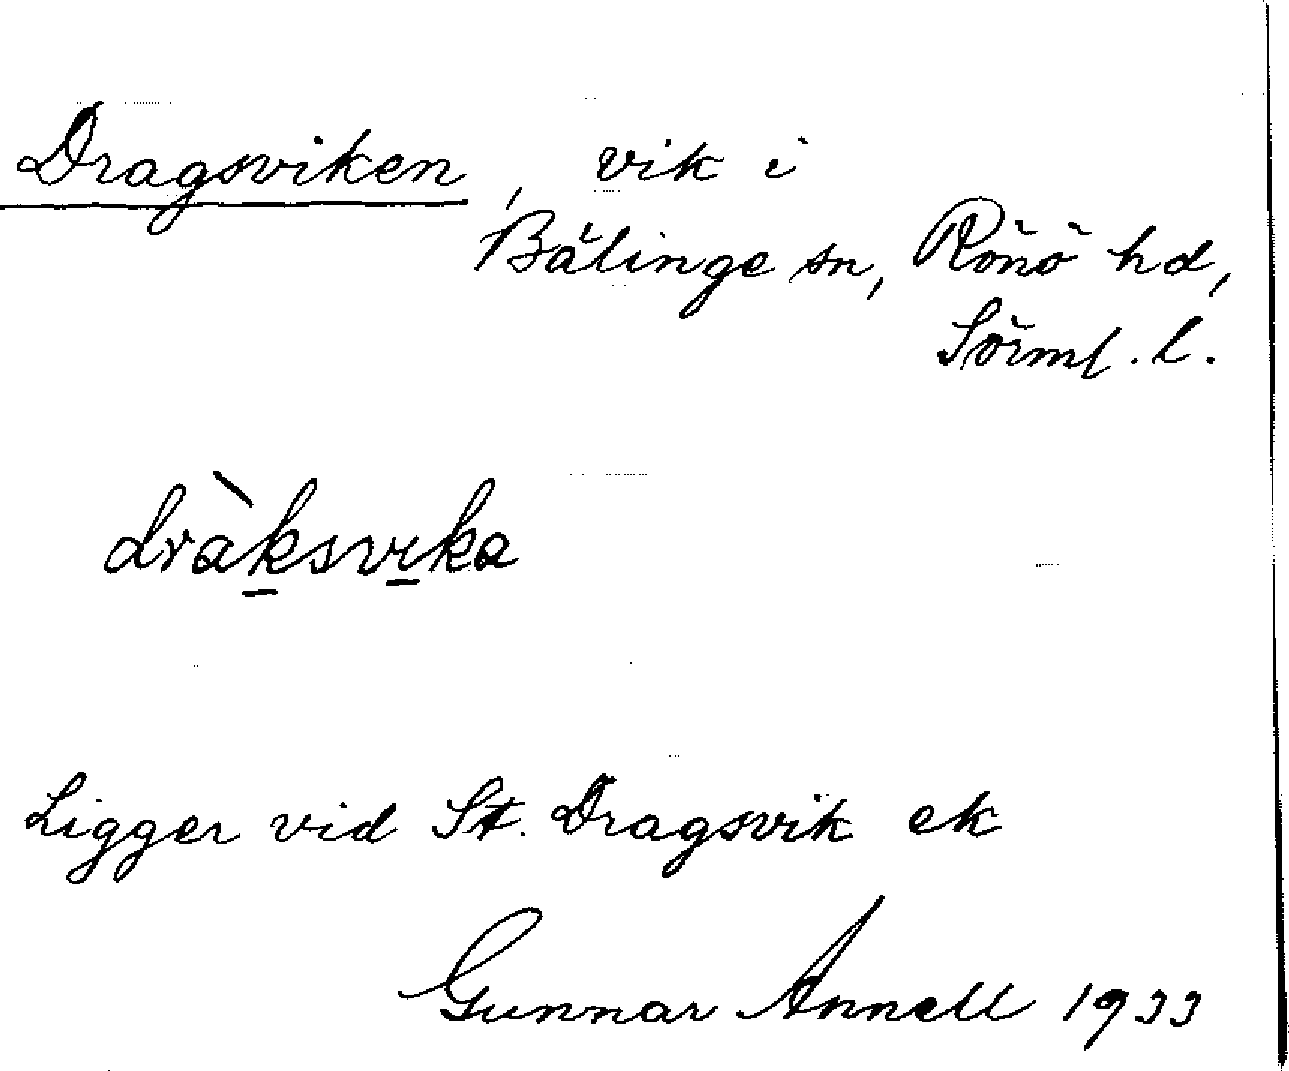 Dragsviken, vik i
Bälinge sn, Rönö hd,
Sörml. l.
dràksvika
Ligger vid St. Dragsvik ek
Gunnar Annell 1933